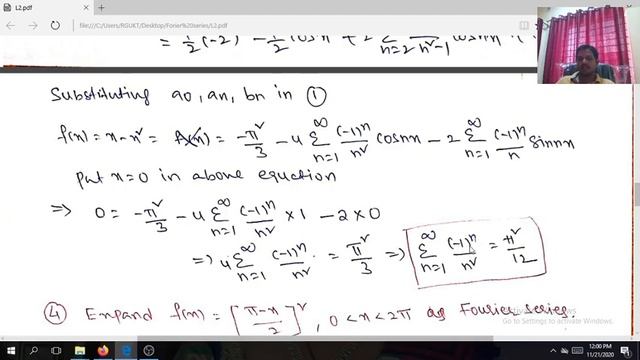 L2.pdf
file:///C:/Users/RGUKT/Desktop/Forier%20series/L2.pdf
= 1/2 (-2) - 1/2 cosx + 2 Σ n=2 n²-1 cosnx
Substituting a0, an, bn in ①
f(x) = x - x² = = -π²/3 - 4 ∞ Σ n=1 (-1)ⁿ/n² cosnx - 2 ∞ Σ n=1 (-1)ⁿ/n sinnx
put x=0 in above equction
⇒ 0 = -π²/3 - 4 ∞ Σ n=1 (-1)ⁿ/n² × 1 - 2 × 0
⇒ 4 ∞ Σ n=1 (-1)ⁿ/n² = π²/3 ⇒ ∞ Σ n=1 (-1)ⁿ/n² = π²/12
④ Expand f(x) = [π-x/2]², 0 < x < 2π as Fourier series.
Go to Settings to activate Windows.
12:00 PM
11/21/2020